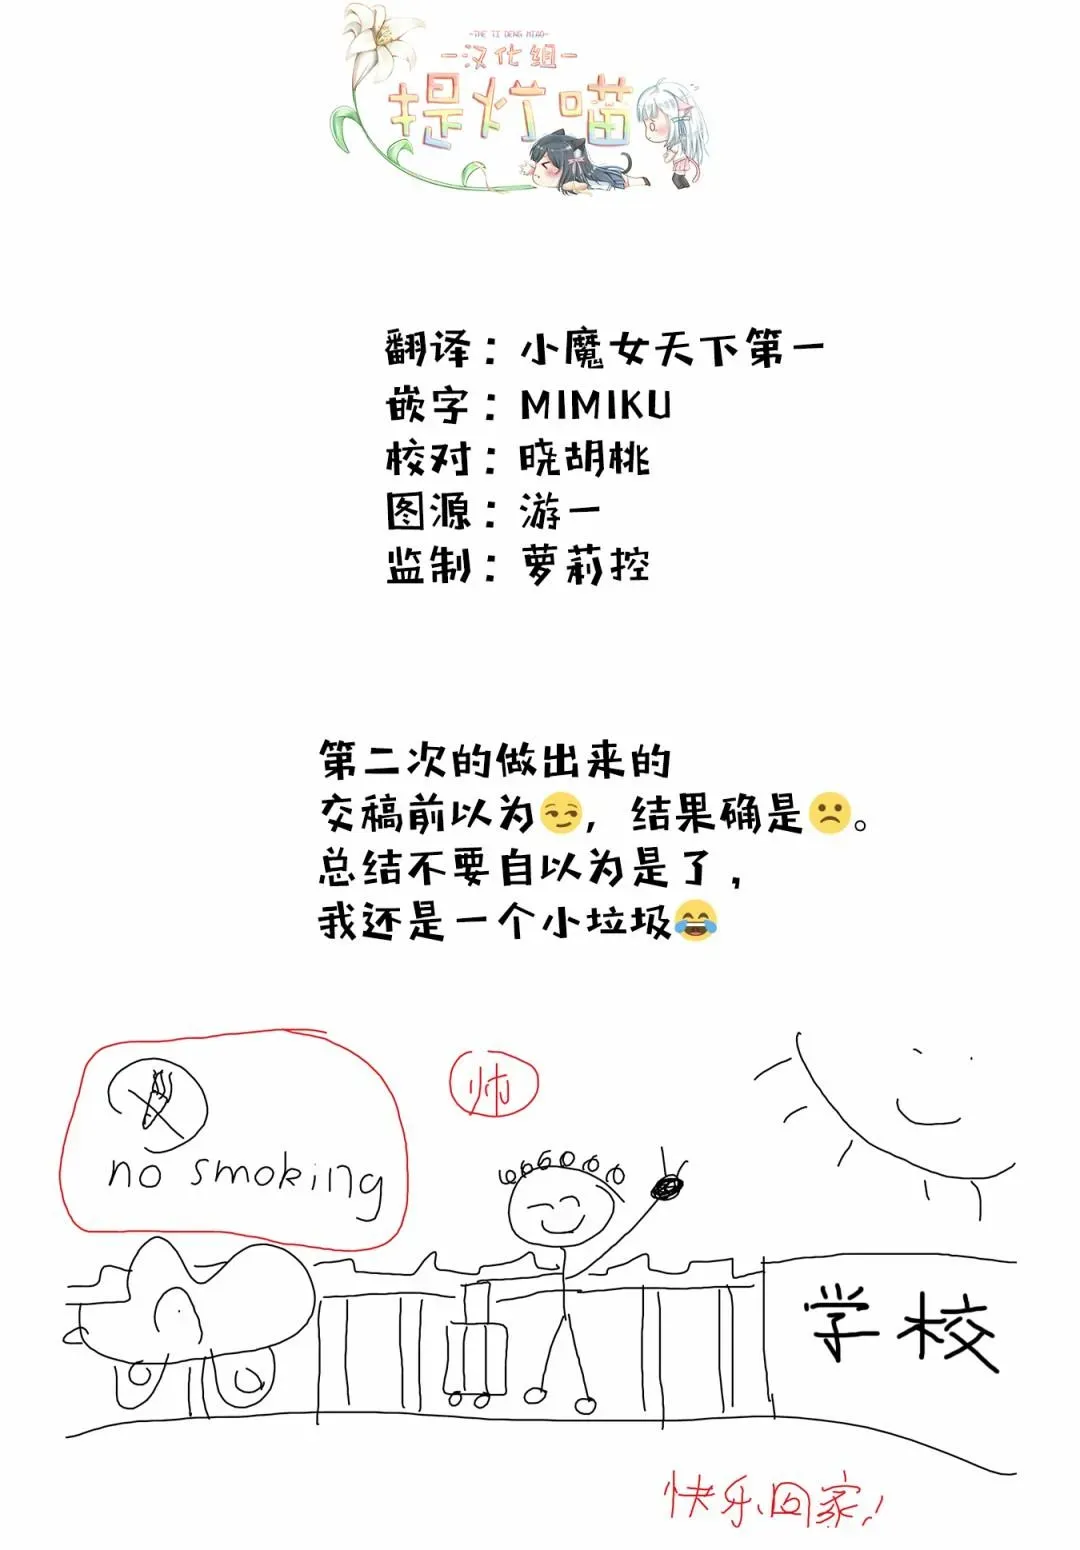 -THE TI DENG MIAO-
-汉化组-
提灯喵
翻译：小魔女天下第一
嵌字：MIMIKU
校对：晓胡桃
图源：游一
监制：萝莉控
第二次的做出来的
交稿前以为😏，结果确是🙁。
总结不要自以为是了，
我还是一个小垃圾😂
帅
no smoking
学校
快乐回家！